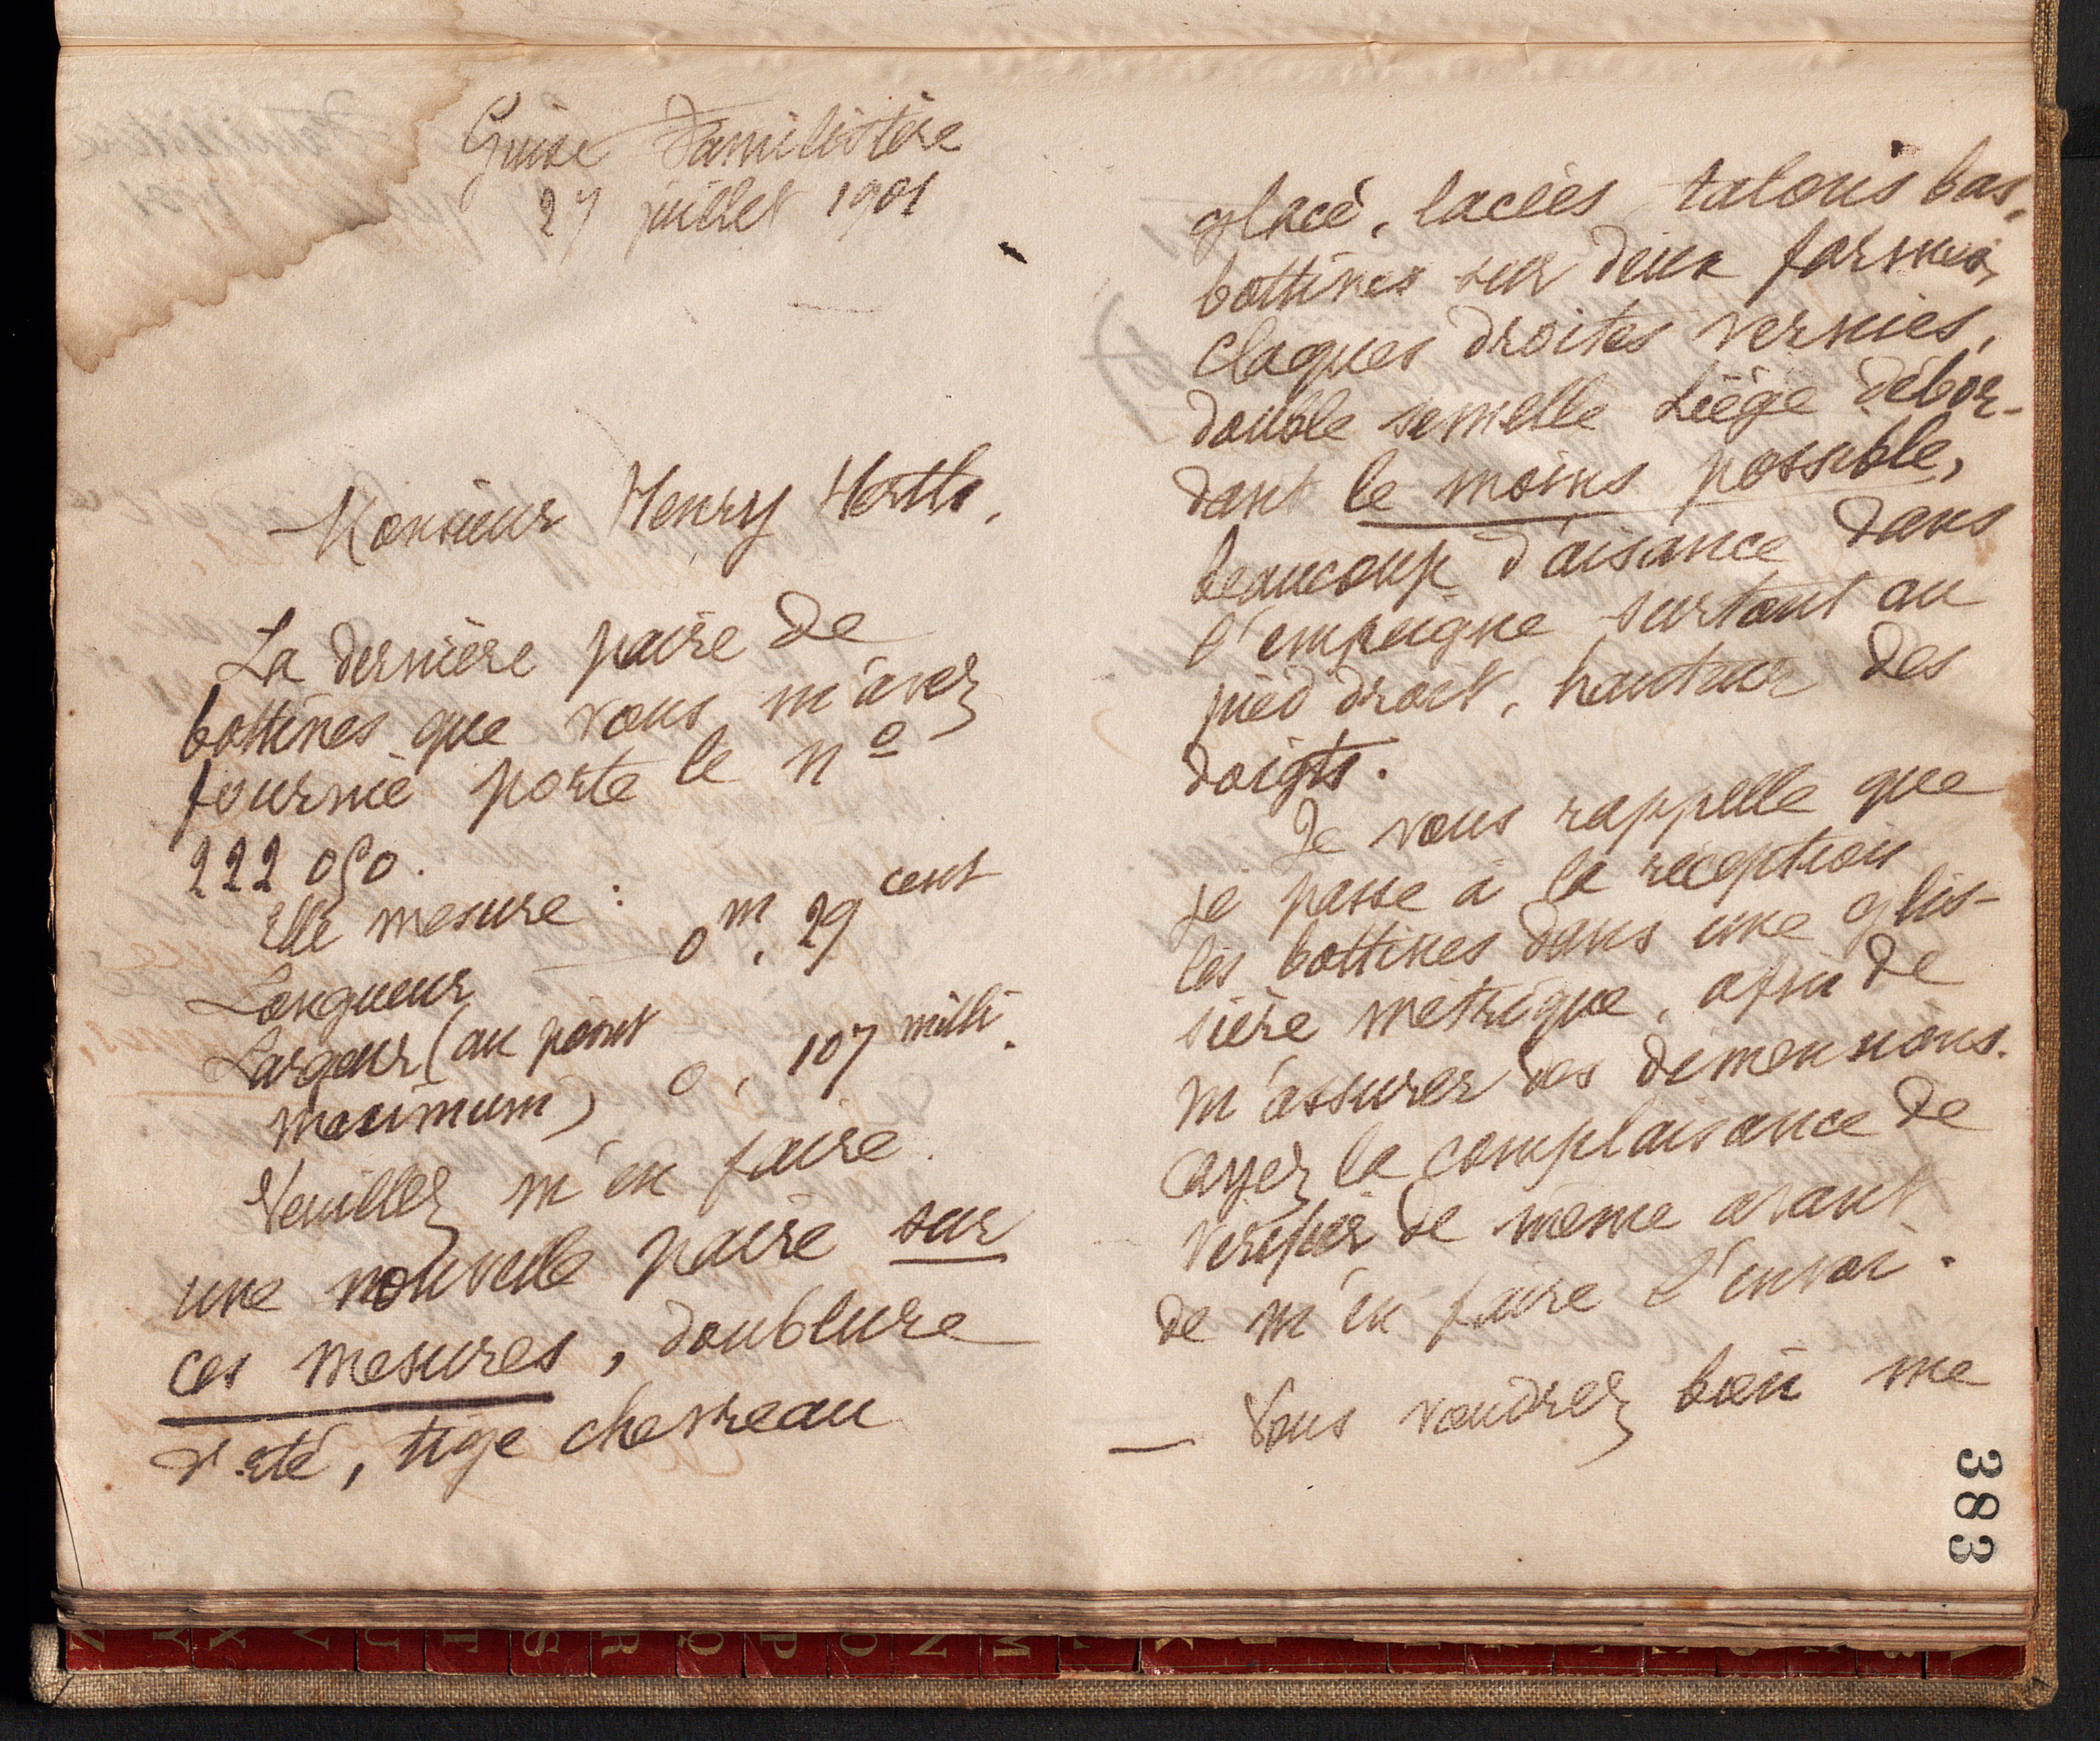 Guise Familistère
27 juillet 1901
Monsieur Henry Herth,
La dernière paire de
bottines que vous m'avez
fournie porte le nº
222 050.
Elle mesure :
Longueur 0 m, 29 cent
Largeur (au point
maximum) 0, 107 milli.
Veuillez m'en faire
une nouvelle paire sur
ces mesures, doublure
d'été, tige chevreau
glacé, lacées talons bas,
bottines sur deux formes,
claques droites vernies,
double semelle liège débor-
dant le moins possible,
beaucoup d'aisance dans
l'empeigne surtout au
pied droit, hauteur des
doigts.
Je vous rappelle que
je passe à la réception
les bottines dans une glis-
sière métrique, afin de
m'assurer des dimensions.
Ayez la complaisance de
vérifier de même avant
de m'en faire l'envoi.
— Vous voudrez bien me
383
Z Y X V U T S R Q P O N M L K